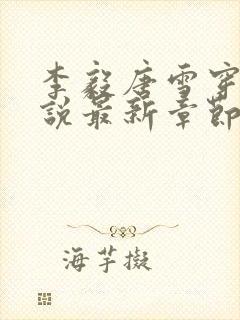 李毅唐雪穿
說最新章節
海芋擬